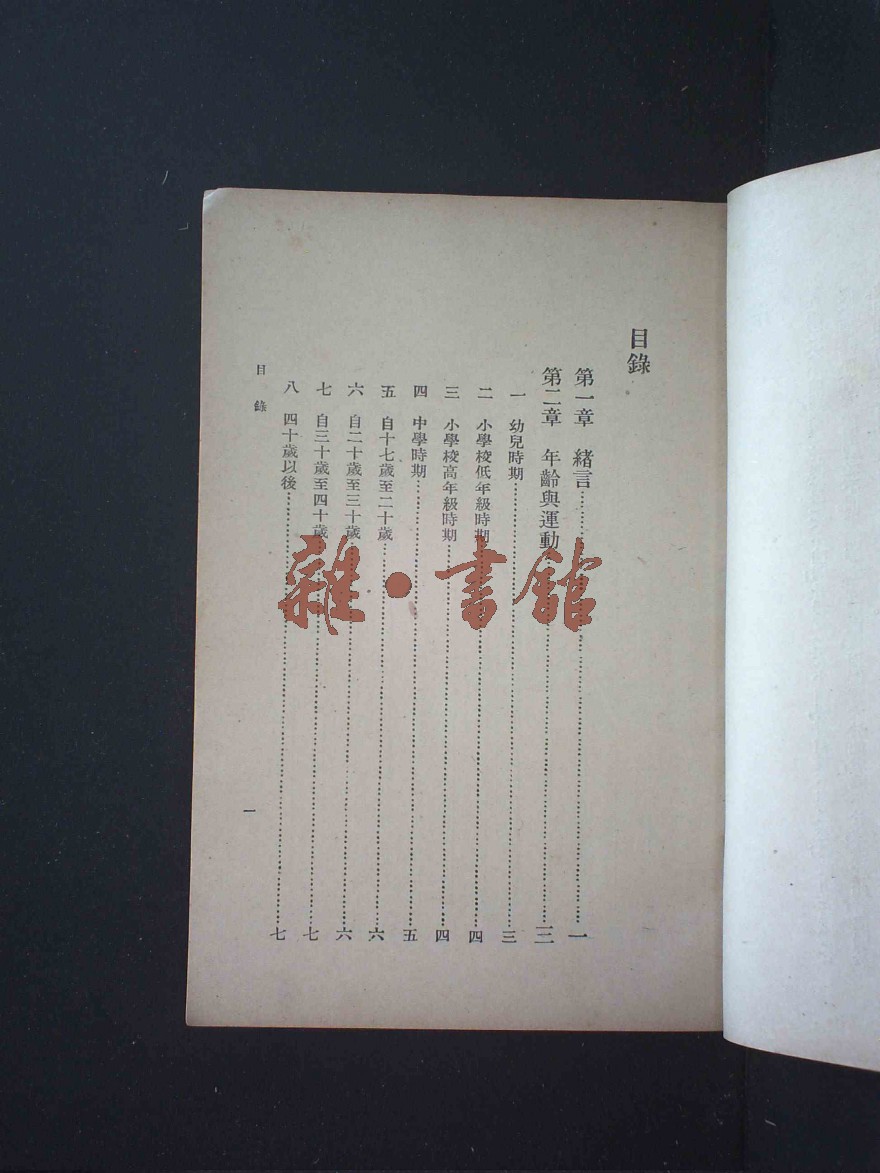 目錄
第一章 緒言……一
第二章 年齡與運動……三
一 幼兒時期……三
二 小學校低年級時期……四
三 小學校高年級時期……四
四 中學時期……五
五 自十七歲至二十歲……六
六 自二十歲至三十歲……六
七 自三十歲至四十歲……七
八 四十歲以後……七
目錄
一
雜·書館